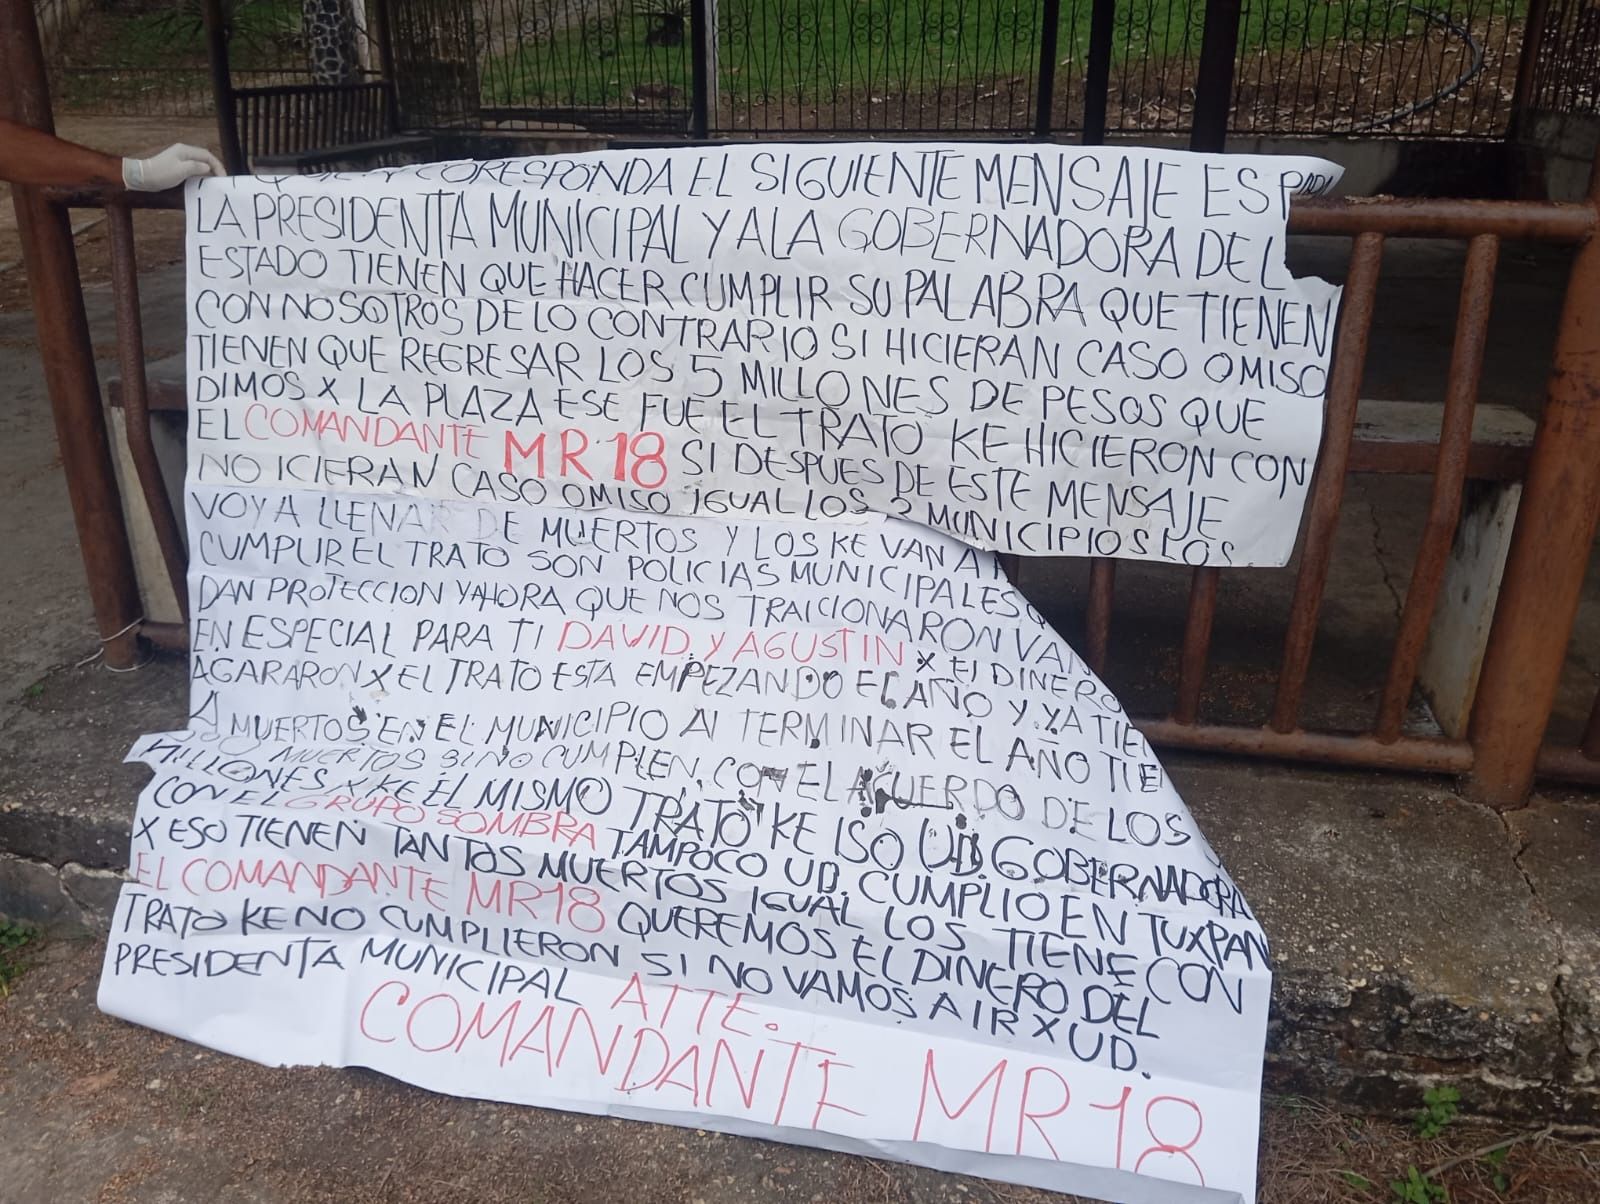 CORESPONDA EL SIGUIENTE MENSAJE ES PARA
LA PRESIDENTA MUNICIPAL Y A LA GOBERNADORA DEL
ESTADO TIENEN QUE HACER CUMPLIR SU PALABRA QUE TIENEN
CON NOSOTROS DE LO CONTRARIO SI HICIERAN CASO OMISO
TIENEN QUE REGRESAR LOS 5 MILLONES DE PESOS QUE
DIMOS X LA PLAZA ESE FUE EL TRATO KE HICIERON CON
EL COMANDANTE MR18 SI DESPUES DE ESTE MENSAJE
NO ICIERAN CASO OMISO IGUAL LOS MUNICIPIOS LOS
VOY A LLENAR DE MUERTOS Y LOS KE VAN A
CUMPLIR EL TRATO SON POLICIAS MUNICIPALES
DAN PROTECCION Y AHORA QUE NOS TRAICIONARON VAN
EN ESPECIAL PARA TI DAVID Y AGUSTIN X El DINERO
AGARARON X EL TRATO ESTA EMPEZANDO EL AÑO Y YA TIE
MUERTOS EN EL MUNICIPIO Al TERMINAR EL AÑO TIE
MUERTOS SI NO CUMPLEN CON EL ACUERDO DE LOS
MILLONES X KE EL MISMO TRATO KE ISO UD. GOBERNADORA
CON EL GRUPO SOMBRA TAMPOCO UD. CUMPLIO EN TUXPAN
X ESO TIENEN TANTOS MUERTOS IGUAL LOS TIENE CON
EL COMANDANTE MR18 QUEREMOS EL DINERO DEL
TRATO KE NO CUMPLIERON SI NO VAMOS A IR X UD.
PRESIDENTA MUNICIPAL ATTE.
COMANDANTE MR18